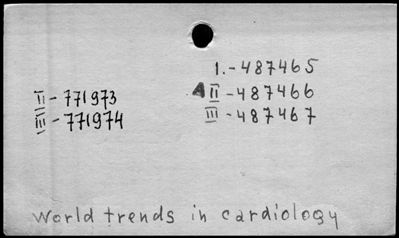 1.-487465
II-771973 AII-487466
III-771974 III-487467
World trends in cardiology